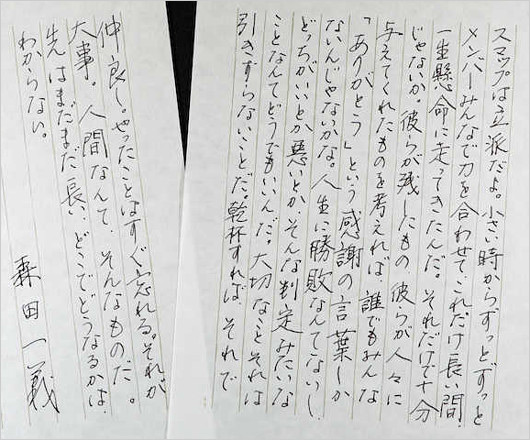 スマップは立派だよ。小さい時からずっとずっと
メンバーみんなで力を合わせて、これだけ長い間、
一生懸命に走ってきたんだ。それだけで十分
じゃないか。彼らが残したもの、彼らが人々に
与えてくれたものを考えれば、誰でもみんな
「ありがとう」という感謝の言葉しか
ないんじゃないかな。人生に勝敗なんてないし、
どっちがいいとか悪いとか、そんな判定みたいな
ことなんてどうでもいいんだ。大切なこと、それは
引きずらないことだ。乾杯すれば、それで
仲良し。やったことはすぐ忘れる。それが
大事。人間なんて、そんなものだ。
先はまだまだ長い、どこでどうなるかは、
わからない。
森田一義